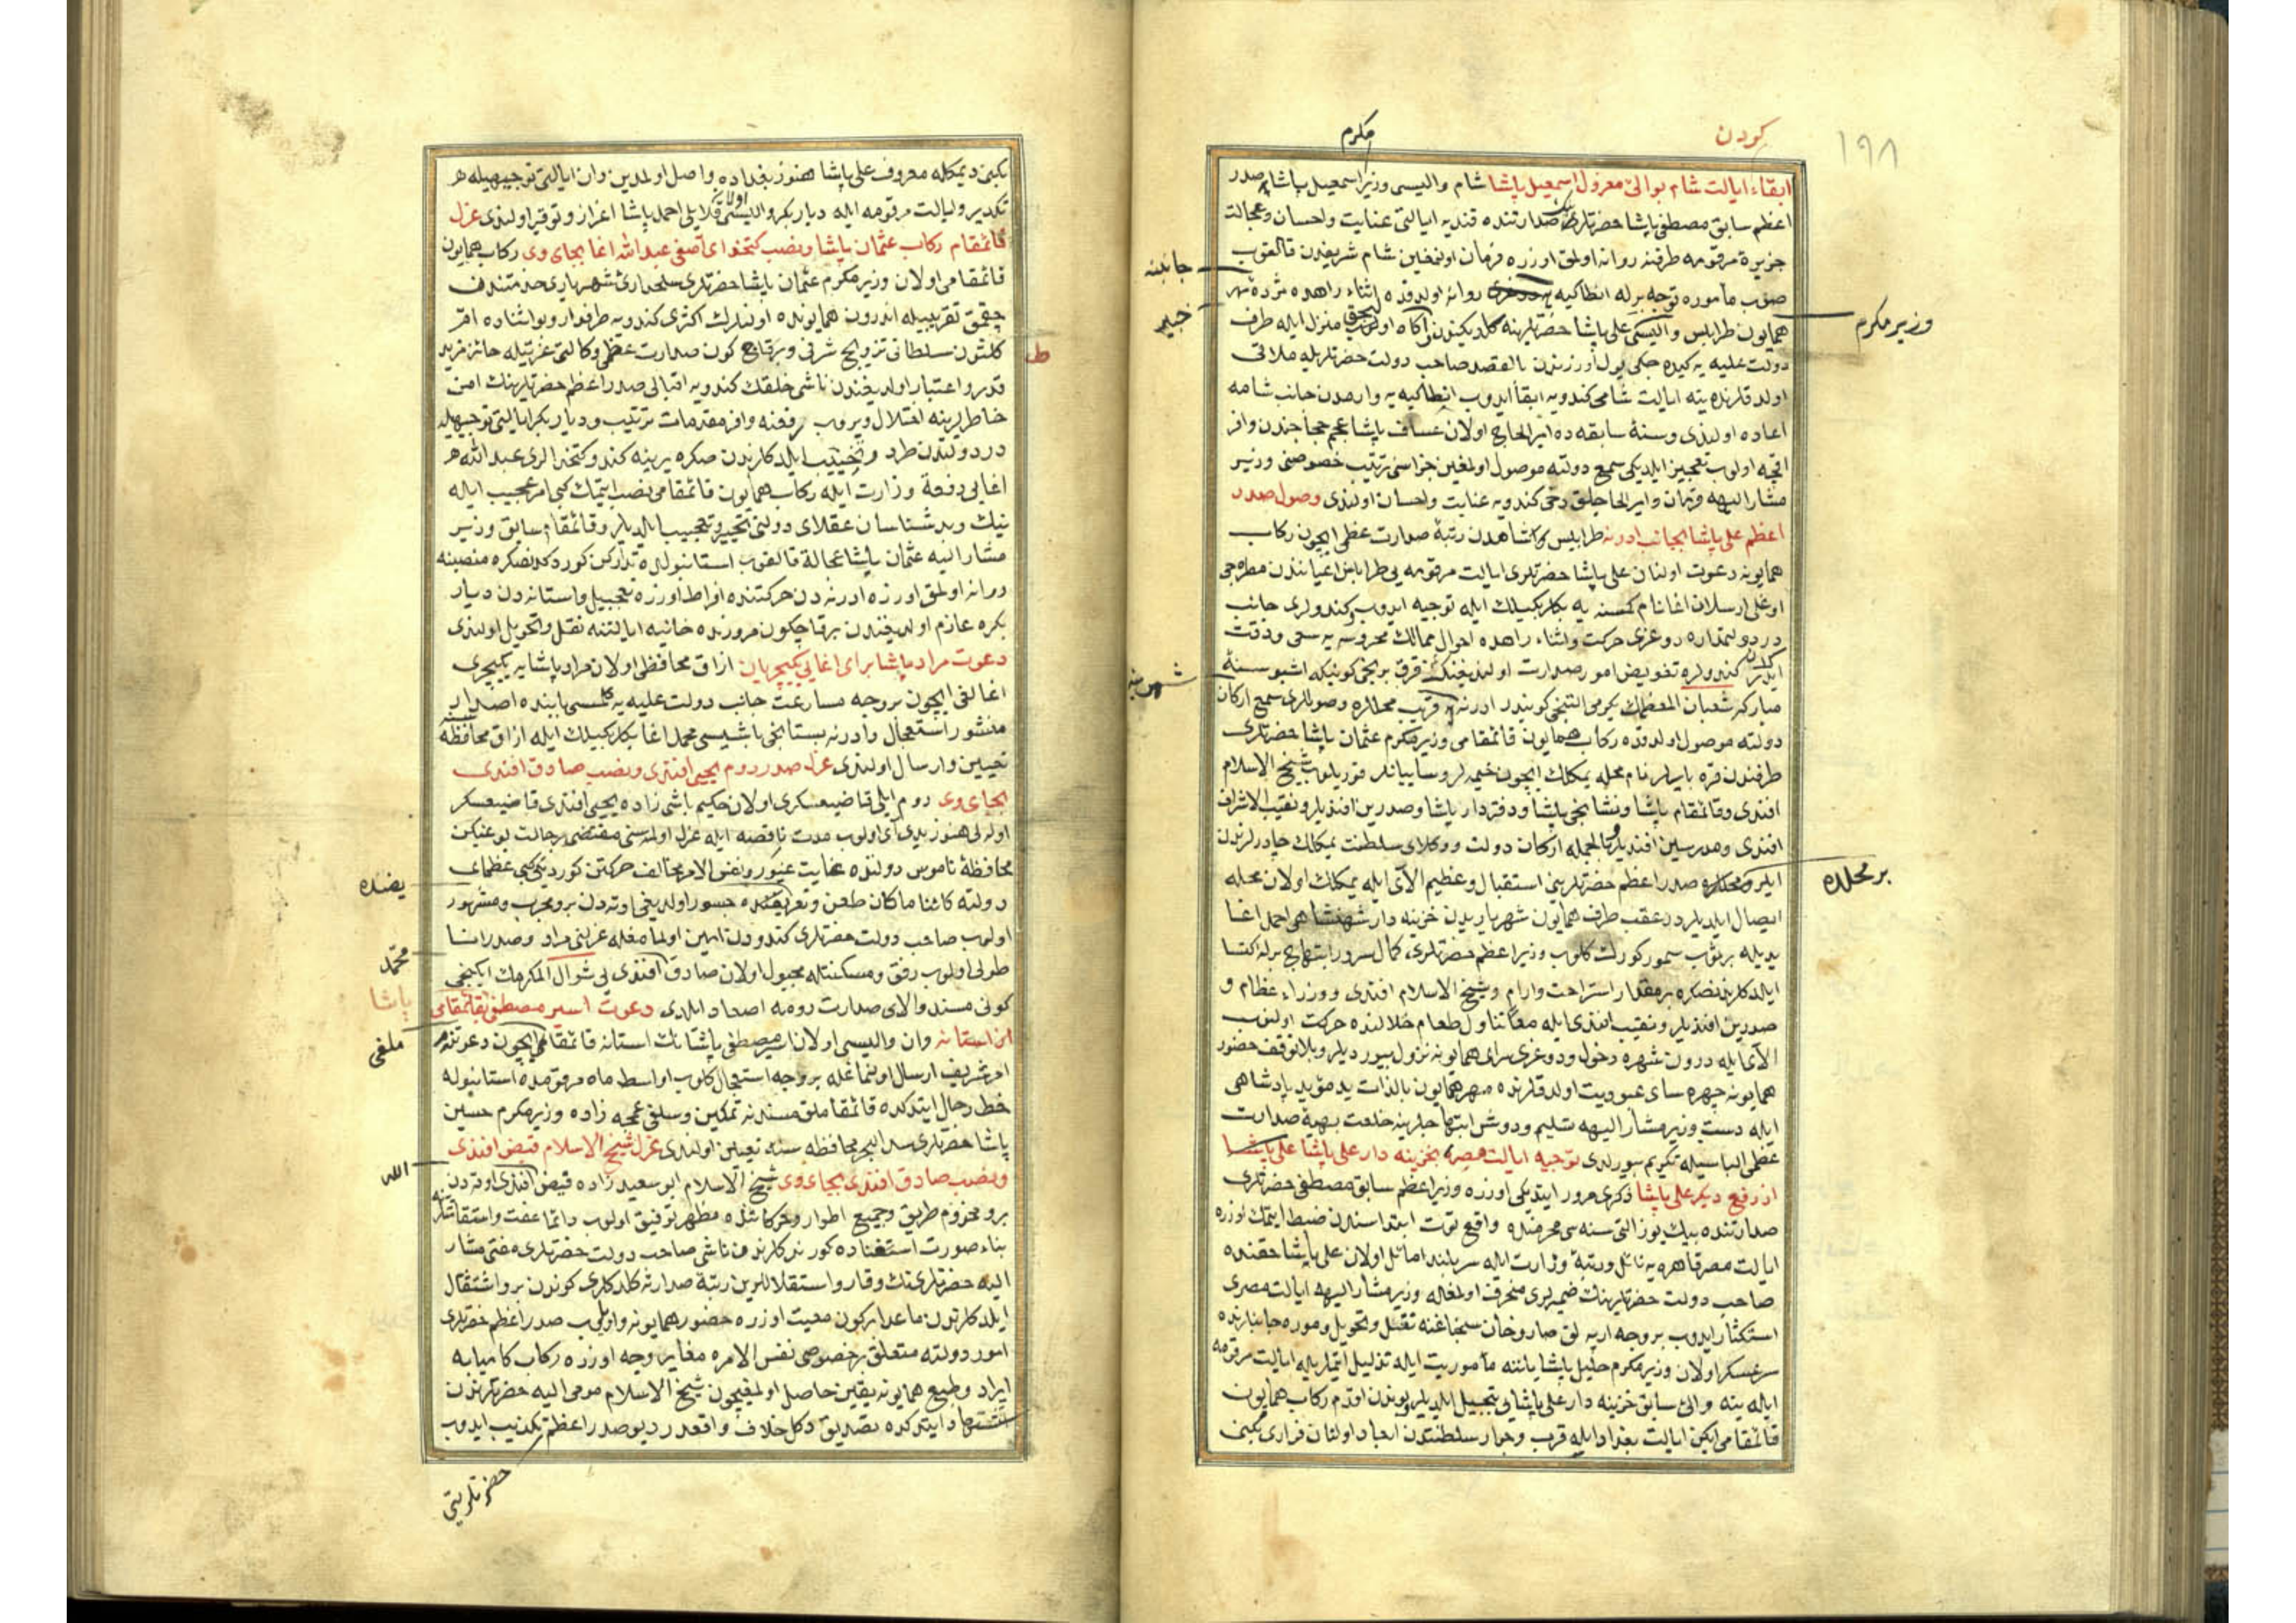 ۱۹۸
كوردن
مكرم
ابقاء ايالت شام بوالئ معزول اسمعيل پاشا شام واليسى وزير اسمعيل پاشا صدر
اعظم سابق مصطفى پاشا حضرتلرينك صدارتنده قنديه ايالتى عنايت واحسان وعجالت
جزيرهٔ مرقومه طرفنه روانه اولمق اوزره فرمان اولنمغين شام شريفدن قالقوب
صوب مأموره توجه برله انطاكيه روانه اولدقده اثناء راهده مژدهٔ مهر
همايون طرابلس واليسى على پاشا حضرتلرينه كلديكندن آكاه اولوب منزل ايله طرف
دولت عليه يه كيده جكى يول اوزرندن بالقصد صاحب دولت حضرتلريله ملاقى
اولدقلرنده ينه ايالت شامى كندويه ابقا ايدوب انطاكيه يه وارمدن جانب شامه
اعاده اولندى وسنهٔ سابقه ده امير الحاج اولان عساف پاشا عجم حجاجندن وافر
اقچه اولوب تعجيز ايلديكى سمع دولته موصول اولمغين جزاسنى ترتيب خصوصنى وزير
مشار اليهه فرمان وامير الحاجلق دخى كندويه عنايت واحسان اولندى وصول صدر
اعظم على پاشا بجانب ادرنه طرابلس كاشاهدن رتبهٔ صدارت عظمى ايچون ركاب
همايونه دعوت اولنان على پاشا حضرتلرى ايالت مرقومه يى طرابلس اعيانندن مطرجى
اوغلى ارسلان اغا نام كمسنه يه بكلربكيلك ايله توجيه ايدوب وكندولرى جانب
در دولتمداره دوغرى حركت واثناء راهده احوال ممالك محروسه يه سعى ودقت
ايدرك كندولره تفويض امور صدارت اولنديغنك قرق برنجى كونيكه اشبو سنهٔ
مباركه شعبان المعظمك يكرمى التنجى كونيدر ادرنه يه قريب محللره وصوللرى سمع اركان
دولته موصول اولدقده ركاب همايون قائمقامى وزير مكرم عثمان پاشا حضرتلرى
طرفندن قره بايرلر نام محله يمكلك ايچون خيمه لر وسايبانلر قوريلوب شيخ الاسلام
افندى وقائمقام پاشا ونشانجى پاشا ودفتردار پاشا وصدرين افنديلر ونقيب الاشراف
افندى ومدرسين افنديلر وبالجمله اركان دولت ووكلاى سلطنت يمكلك چادرلرندن
ايلرو محللره صدر اعظم حضرتلرينى استقبال وعظيم الاى ايله يمكلك اولان محله
ايصال ايلديلر در عقب طرف همايون شهرياريدن خزينه دار شهنشاهى احمد اغا
يديله بر ثوب سمور كورك كلوب وزير اعظم حضرتلرى كمال سرور وابتهاج برله اكتسا
ايلدكلرندنصكره بر مقدار استراحت وارام وشيخ الاسلام افندى ووزراء عظام و
صدرين افنديلر ونقيب افندى ايله معًا تناول طعام خلالنده حركت اولنوب
الاى ايله درون شهره دخول ودوغرى سراى همايونه نزول بيورديلر وبلا توقف حضور
همايونه چهره ساى عبوديت اولدقلرنده مهر همايون بالذات يد مؤيد پادشاهى
ايله دست وزير مشار اليهه تسليم ودوش ابتهاجلرينه خلعت بهيهٔ صدارت
عظمى الباسيله تكريم بيورلدى توجيه ايالت مصره بخزينه دار على پاشا
از رفع ديكر على پاشا ذكرى مرور ايتديكى اوزره وزير اعظم سابق مصطفى حضرتلرى
صدارتنده بيك يوز التى سنه سى محرمنده واقع توت ابتداسندن ضبط ايتمك اوزره
ايالت مصر قاهره يه نائل ورتبهٔ وزارت ايله سربلند اماثل اولان على پاشا حقنده
صاحب دولت حضرتلرينك ضميرلرى منحرف اولمغله وزير مشار اليهه ايالت مصرى
استكثار ايدوب بر وجه ارپه لق صاروخان سنجاغنه نقل وتحويل وموره جانبلرنده
سرعسكر اولان وزير مكرم خليل پاشا ياننه مأموريت ايله تذليل ايتديلر ايالت مرقومه
ايله ينه والئ سابق خزينه دار على پاشايى تبجيل ايلديلر بوندن اقدم ركاب همايون
قائمقامى ايكن ايالت بغداد ايله قرب وجوار سلطنتدن ابعاد اولنان فرارى يكن
جانبنه
خبير
وزير مكرم
شهرينه
بر محلده
يكنى ديمكله معروف على پاشا هنوز بغداده واصل اولمدين وان ايالتى توجيهيله
تكدير وايالت مرقومه ايله دياربكر واليسى اولان قلايلى احمد پاشا اغزاز وتوقير اولندى عزل
قائمقام ركاب عثمان پاشا ونصب كتخداى آصفى عبد الله اغا بجاى وى ركاب همايون
قائمقامى اولان وزير مكرم عثمان پاشا حضرتلرى سلحدارئ شهريارى خدمتندن
چقمق تقريبيله اندرون همايونده اولنلرك اكثرى كندويه طرفدار وبو اثناده امر
كلثوم سلطانى تزويج شرفى وبر قاچ كون صدارت عظمى وكالتى عزتيله حائز مزيد
قدر واعتبار اولديغندن ناشى خلقك كندويه اقبالى صدر اعظم حضرتلرينك امن
خاطرلرينه اعتلال ويروب رفعنه وافر مقدمات ترتيب ودياربكر ايالتى توجيهيله
در دولتدن طرد وتخييب ايلدكلرندن صكره يرينه كندو كتخدالرى عبد الله
اغايى دفعهٔ وزارت ايله ركاب همايون قائمقامى نصب ايتمك كبى امر عجيب ايله
نيك وبد شناسان عقلاى دولتى تحيير وتعجيب ايلديلر وقائمقام سابق وزير
مشار اليه عثمان پاشا عجالةً قالقوب استانبولده تداركن كوردكدنصكره منصبنه
روانه اولمق اوزره ادرنه دن حركتنده افراط اوزره تعجيل واستانه دن ديار
بكره عازم اولديغندن بر قاچ كون مرورنده خانيه ايالتنه نقل وتحويل اولندى
دعوت مراد پاشا براى اغايى يكيچريان ازاق محافظى اولان مراد پاشايه يكيچرى
اغالغى ايچون بر وجه مسارعت جانب دولت عليه يه كلمسى بابنده اصدار
منشور استعجال وادرنه بستانجى باشيسى محمد اغا بكلربكيلك ايله ازاق محافظه سنه
تعيين وارسال اولندى عزل صدر روم يحيى افندى ونصب صادق افندى
بجاى وى روم ايلى قاضيعسكرى اولان حكيم باشى زاده يحيى افندى قاضيعسكر
اوله لى هنوز يدى آى اولوب مدت ناقصه ايله عزل اولنمسنى مقتضى بر حالت يوغيكن
محافظهٔ ناموس دولتده بغايت غيور ونفس الامره مخالف حركتن كورديكى كبى عظماى
دولته كائنا ماكان طعن وتعريضنده جسور اولديغى اوته دن برو مجرب ومشهور
اولوب صاحب دولت حضرتلرى كندودن امين اولمامغله عزلنى مراد وصدر انا
طولى اولوب رفق ومسكنتله مجبول اولان صادق افندى يى شوال المكرمك ايكنجى
كونى مسند والاى صدارت رومه اصعاد ايلدى دعوت اسير مصطفى بقائمقامى
از استانه وان واليسى اولان اسير مصطفى پاشانك استانه قائمقامى ايچون دعوتنه
امر شريف ارسال اولنمغله بر وجه استعجال كلوب اواسط ماه مرقومده استانبوله
حط رحال ايتدكده قائمقاملق مسندنه تمكين وسلفى عمجه زاده وزير مكرم حسين
پاشا حضرتلرى سد البحر محافظه سنه تعيين اولندى عزل شيخ الاسلام فيض افندى
ونصب صادق افندى بجاى وى شيخ الاسلام ابو سعيد زاده فيض افندى اوته دن
برو مخدوم طريق وجميع اطوار وحركاتنده مظهر توفيق اولوب دائما عفت واستقامتلرينه
بناء صورت استغناده كورندكلرندن ناشى صاحب دولت حضرتلرى مفتئ مشار
اليه حضرتلرينك وقار واستقلاللرين رتبهٔ صدارته كلدكلرى كوندن برو استثقال
ايلدكلرندن ماعدا بر كون معيت اوزره حضور همايونه واريلوب صدر اعظم حضرتلرى
امور دولته متعلق بر خصوصى نفس الامره مغاير وجه اوزره ركاب كاميابه
ايراد وطبع همايونه يقين حاصل اولمغيچون شيخ الاسلام مومى اليه حضرتلرندن
استشهاد ايتدكده تصديق دكل خلاف واقعدر ديو صدر اعظم تكذيب ايدوب
ط
يضنده
محمد
پاشا
ملغى
الله
حضرتلرينى